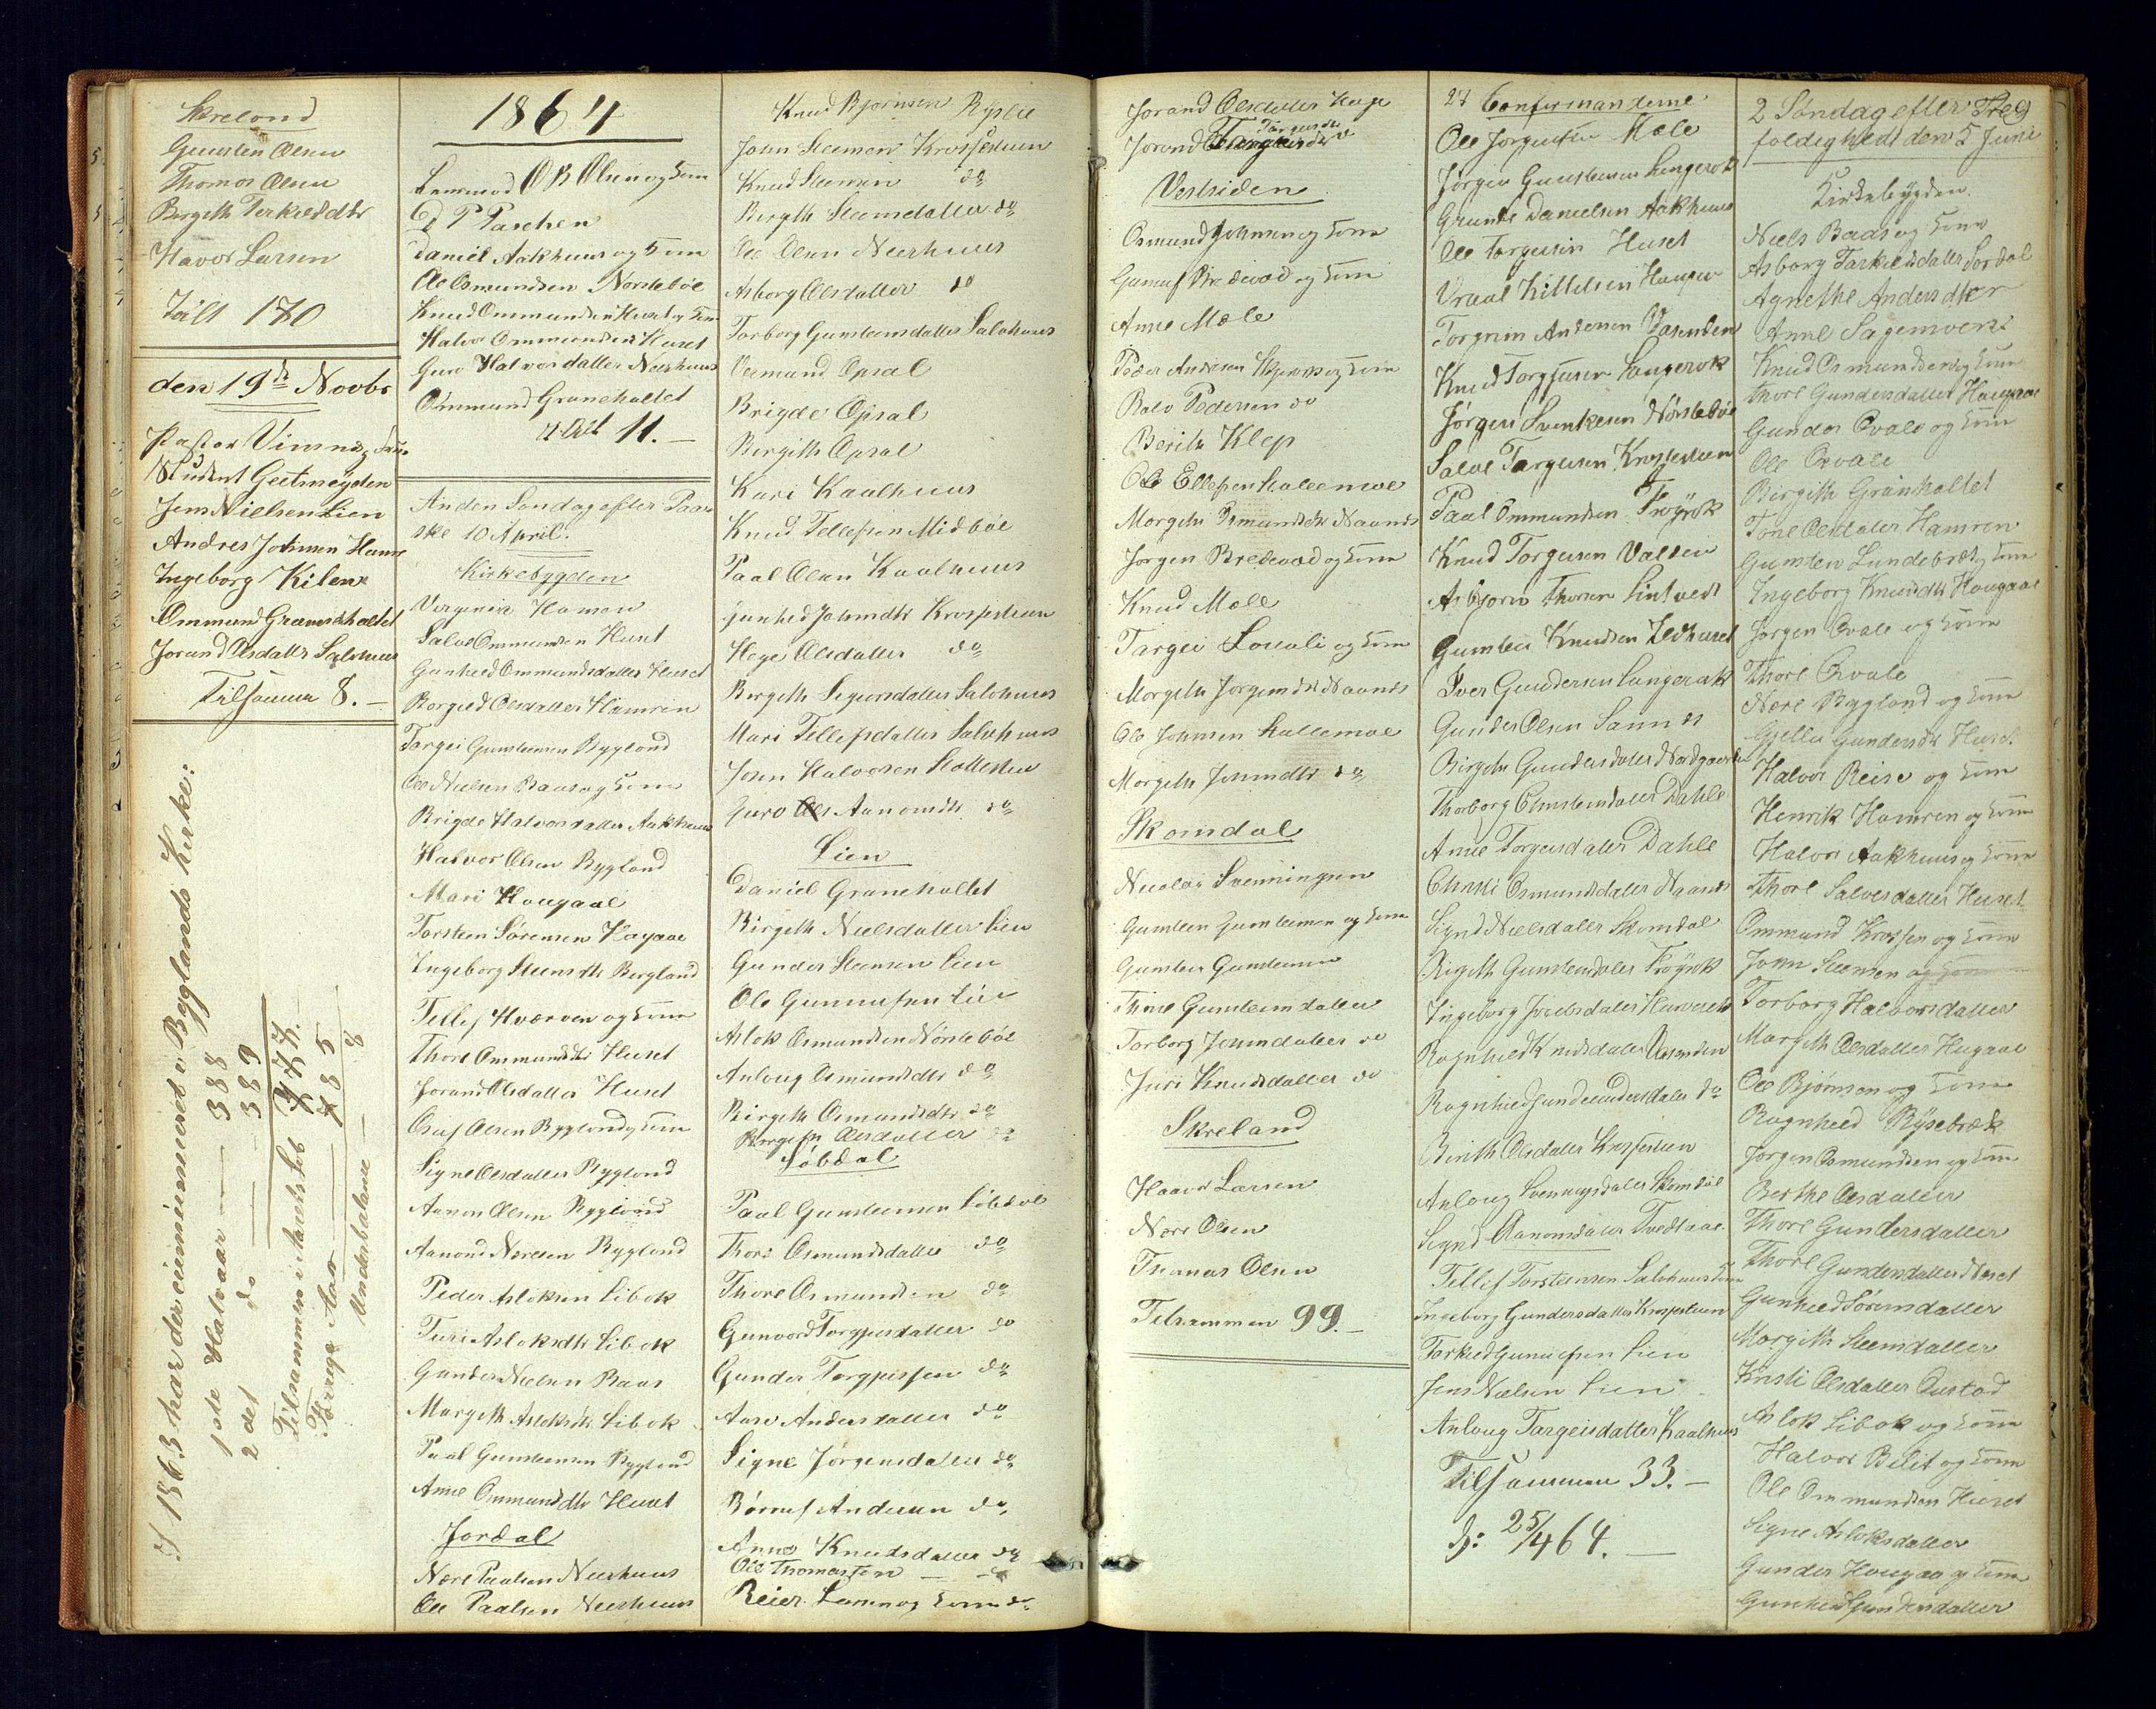 Skreland
Gunsten Olsen
Thomas Olsen
Bergith Terkildsdtr
Havor Larsen
Ialt 170
den 19de Novbr
Pastor Vimme og
Student Geitmeyden
Jens Nielsen Lien
Andres Johnsen
Ingeborg Kilen
Ommund Graneholtet
Jorand Olsdatter Salvhuus
Tilsammen 8.
I 1863 har der communiceret i Byglands Kirke:
1ste Halvaar — 388
2det do — 389
Tilsammen i Aarets Løb 777.
Forrige Aar — 785
Underbalance — 8
1864
O B Olsen og Kone
P Paschen
Daniel Aakhuus og Kone
Ole Osmundsen Nørstebøe
Knud Ommundsen Huset og Kone
Halvor Ommundsen Huset
Guro Halvorsdatter Neerhuus
Ommund Graneholtet
11.
Anden Søndag efter Paa-
ske 10 April.
Kirkebygden
Hamren
Salve Ommundsen Huset
Gunhild Ommundsdatter Huset
Borgild Olsdatter Hamren
Targei Gunsteensen Bygland
Ole Nielsen Baas og Kone
Brigde Halvorsdatter Aakhuus
Halvor Olsen Bygland
Mari Hougaae
Torsteen Sørensen Hagaae
Ingeborg Steensdtr Bergland
Tellef Hværven og Kone
Thore Ommundsdtr Huset
Jorand Olsdatter Huset
Oluf Olsen Bygland og Kone
Signe Olsdatter Bygland
Aanon Olsen Bygland
Aanond Næresen Bygland
Peder Asloksen Libok
Turi Asloksdtr Libok
Gunder Nielsen Baas
Margith Asloksdtr Libok
Paal Gunsteensen Bygland
Anne Ommundsdtr Huset
Jordal
Nære Paalsen Neerhuus
Ole Paalsen Neerhuus
Knud Bjørnsen Ryslie
John Steensen Krossesteen
Knud Steensen do
Birgith Steensdatter do
Ole Olsen Neerhuus
Asborg Olsdatter do
Torborg Gunsteensdatter Salvhuus
Vermund Opsal
Brigde Opsal
Bergith Opsal
Kari Kaalhuus
Knud Tellefsen Midbøe
Paal Olsen Kaalhuus
Gunhild Johnsdtr Krossesteen
Hege Olsdatter do
Bergith Sigursdatter Salvhuus
Mari Tellefsdatter Salvhuus
John Halvorsen
Guro Aanonsdtr do
Lien
Daniel Graneholtet
Birgith Nielsdatter Lien
Gunder Steensen Lien
Ole Gunnufsen Lien
Aslok Osmundsen Nørstebøe
Anloug Osmundsdtr do
Birgith Osmundsdtr do
Birgith Olsdatter do
Løbdal
Paal Gunsteensen Løbdal
Thore Osmundsdatter do
Thore Osmundsen do
Gunvord Torgjusdatter do
Gunder Torgjussen do
Aase Andersdatter do
Signe Jørgensdatter do
Børuf Andersen do
Anne Knudsdatter do
Ole Thomassen — do
Reier Larsen og Kone do
Jorand Olsdatter Hage
Jorand Targeisdtr do
Vestsiden
Osmund Johnsen og Kone
Gunuf Bredevad og Kone
Anne Mæle
Peder Andersen og Kone
Bolv Pedersen do
Berith Klep
Ole Ellefsen Kallemoe
Margith Osmundsdtr Naanes
Jørgen Bredevad og Kone
Knud Mæle
Targei Louali og Kone
Margith Jørgensdtr Naanes
Ole Johnsen Kallemoe
Margith Johnsdtr do
Skomdal
Nicolai Svenningsen
Gunsteen Gunsteensen og Kone
Gunsteen Gunsteensen
Thone Gunsteensdatter
Torborg Johnsdatter do
Juri Knudsdatter do
Skreland
Haavor Larsen
Nære Olsen
Thomas Olsen
Tilsammen 99.
27 Confirmanderne
Ole Jørgensen Mæle
Jørgen Gunsteensen Langerok
Grunde Danielsen Aakhuus
Ole Torgeirsen Huset
Vraal Kittelsen Haugen
Torgrim Andersen Vasenden
Knud Torgjusen Langerok
Jørgen Svenkesen Nørstebøe
Salve Targeisen Krossesteen
Paal Ommundsen Frøyrok
Knud Torgeirsen Valden
Asbjørn Thorsen Lintvedt
Gunsteen Knudsen Ildhuset
Iver Gundersen Langerak
Gunder Olsen
Birgith Gundersdatter
Thorborg Gunsteensdatter Dahle
Anne Torgeirsdatter Dahle
Christi Osmundsdatter Naanes
Signe Nielsdatter Skomdal
Birgith Gunsteensdatter Frøyrok
Ingeborg
Ragnhild Knudsdatter Vasenden
Ragnhild Gundersdatter do
Birith Olsdatter Krossesteen
Anloug Svenningsdatter Skomdal
Signe Aanonsdatter Tvedtaae
Tellef Torsteensen Salvhuus
Ingeborg Gundersdatter Krossesteen
Torkild Gunufsen Lien
Jens Nielsen Lien
Anloug Targeisdatter Kaalhuus
Tilsammen 33. —
d: 25/4 64. —
2 Søndag efter Tre-
foldighed den 5 Juni
Kirkebygden.
Niels Baas og Kone
Asborg Tarkildsdatter Jordal
Agnethe Andersdtr
Anne Sagenværk
Knud Osmundsen og Kone
Thore Gundersdatter Hougaae
Gunder Ovale og Kone
Ole Ovale
Birgith Graneholtet
Tone Olsdatter Hamren
Gunsten Lundebræk og Kone
Ingeborg Knudsdtr Hougaae
Jørgen Ovale og Kone
Thore Ovale
Nære Bygland og Kone
Gjellu Gundersdtr Huset
Halvor Reise og Kone
Henrik Hamren og Kone
Halvor Aakhuus og Kone
Thore Salvesdatter Huset
Ommund Krossen og Kone
John Steensen og Kone
Torborg Halvorsdatter
Margith Olsdatter Hugaae
Ole Bjørnsen og Kone
Ragnhild Rysebræk
Jørgen Osmundsen og Kone
Berthe Olsdatter
Thore Gundersdatter
Thore Gundersdatter Huset
Gunhild Sørensdatter
Margith Steensdatter
Kristi Olsdatter Austad
Aslok Libok og Kone
Halvor og Kone
Ole Ommundsen Huset
Signe Asloksdatter
Gunder Hougaa og Kone
Gunhild Gundersdatter